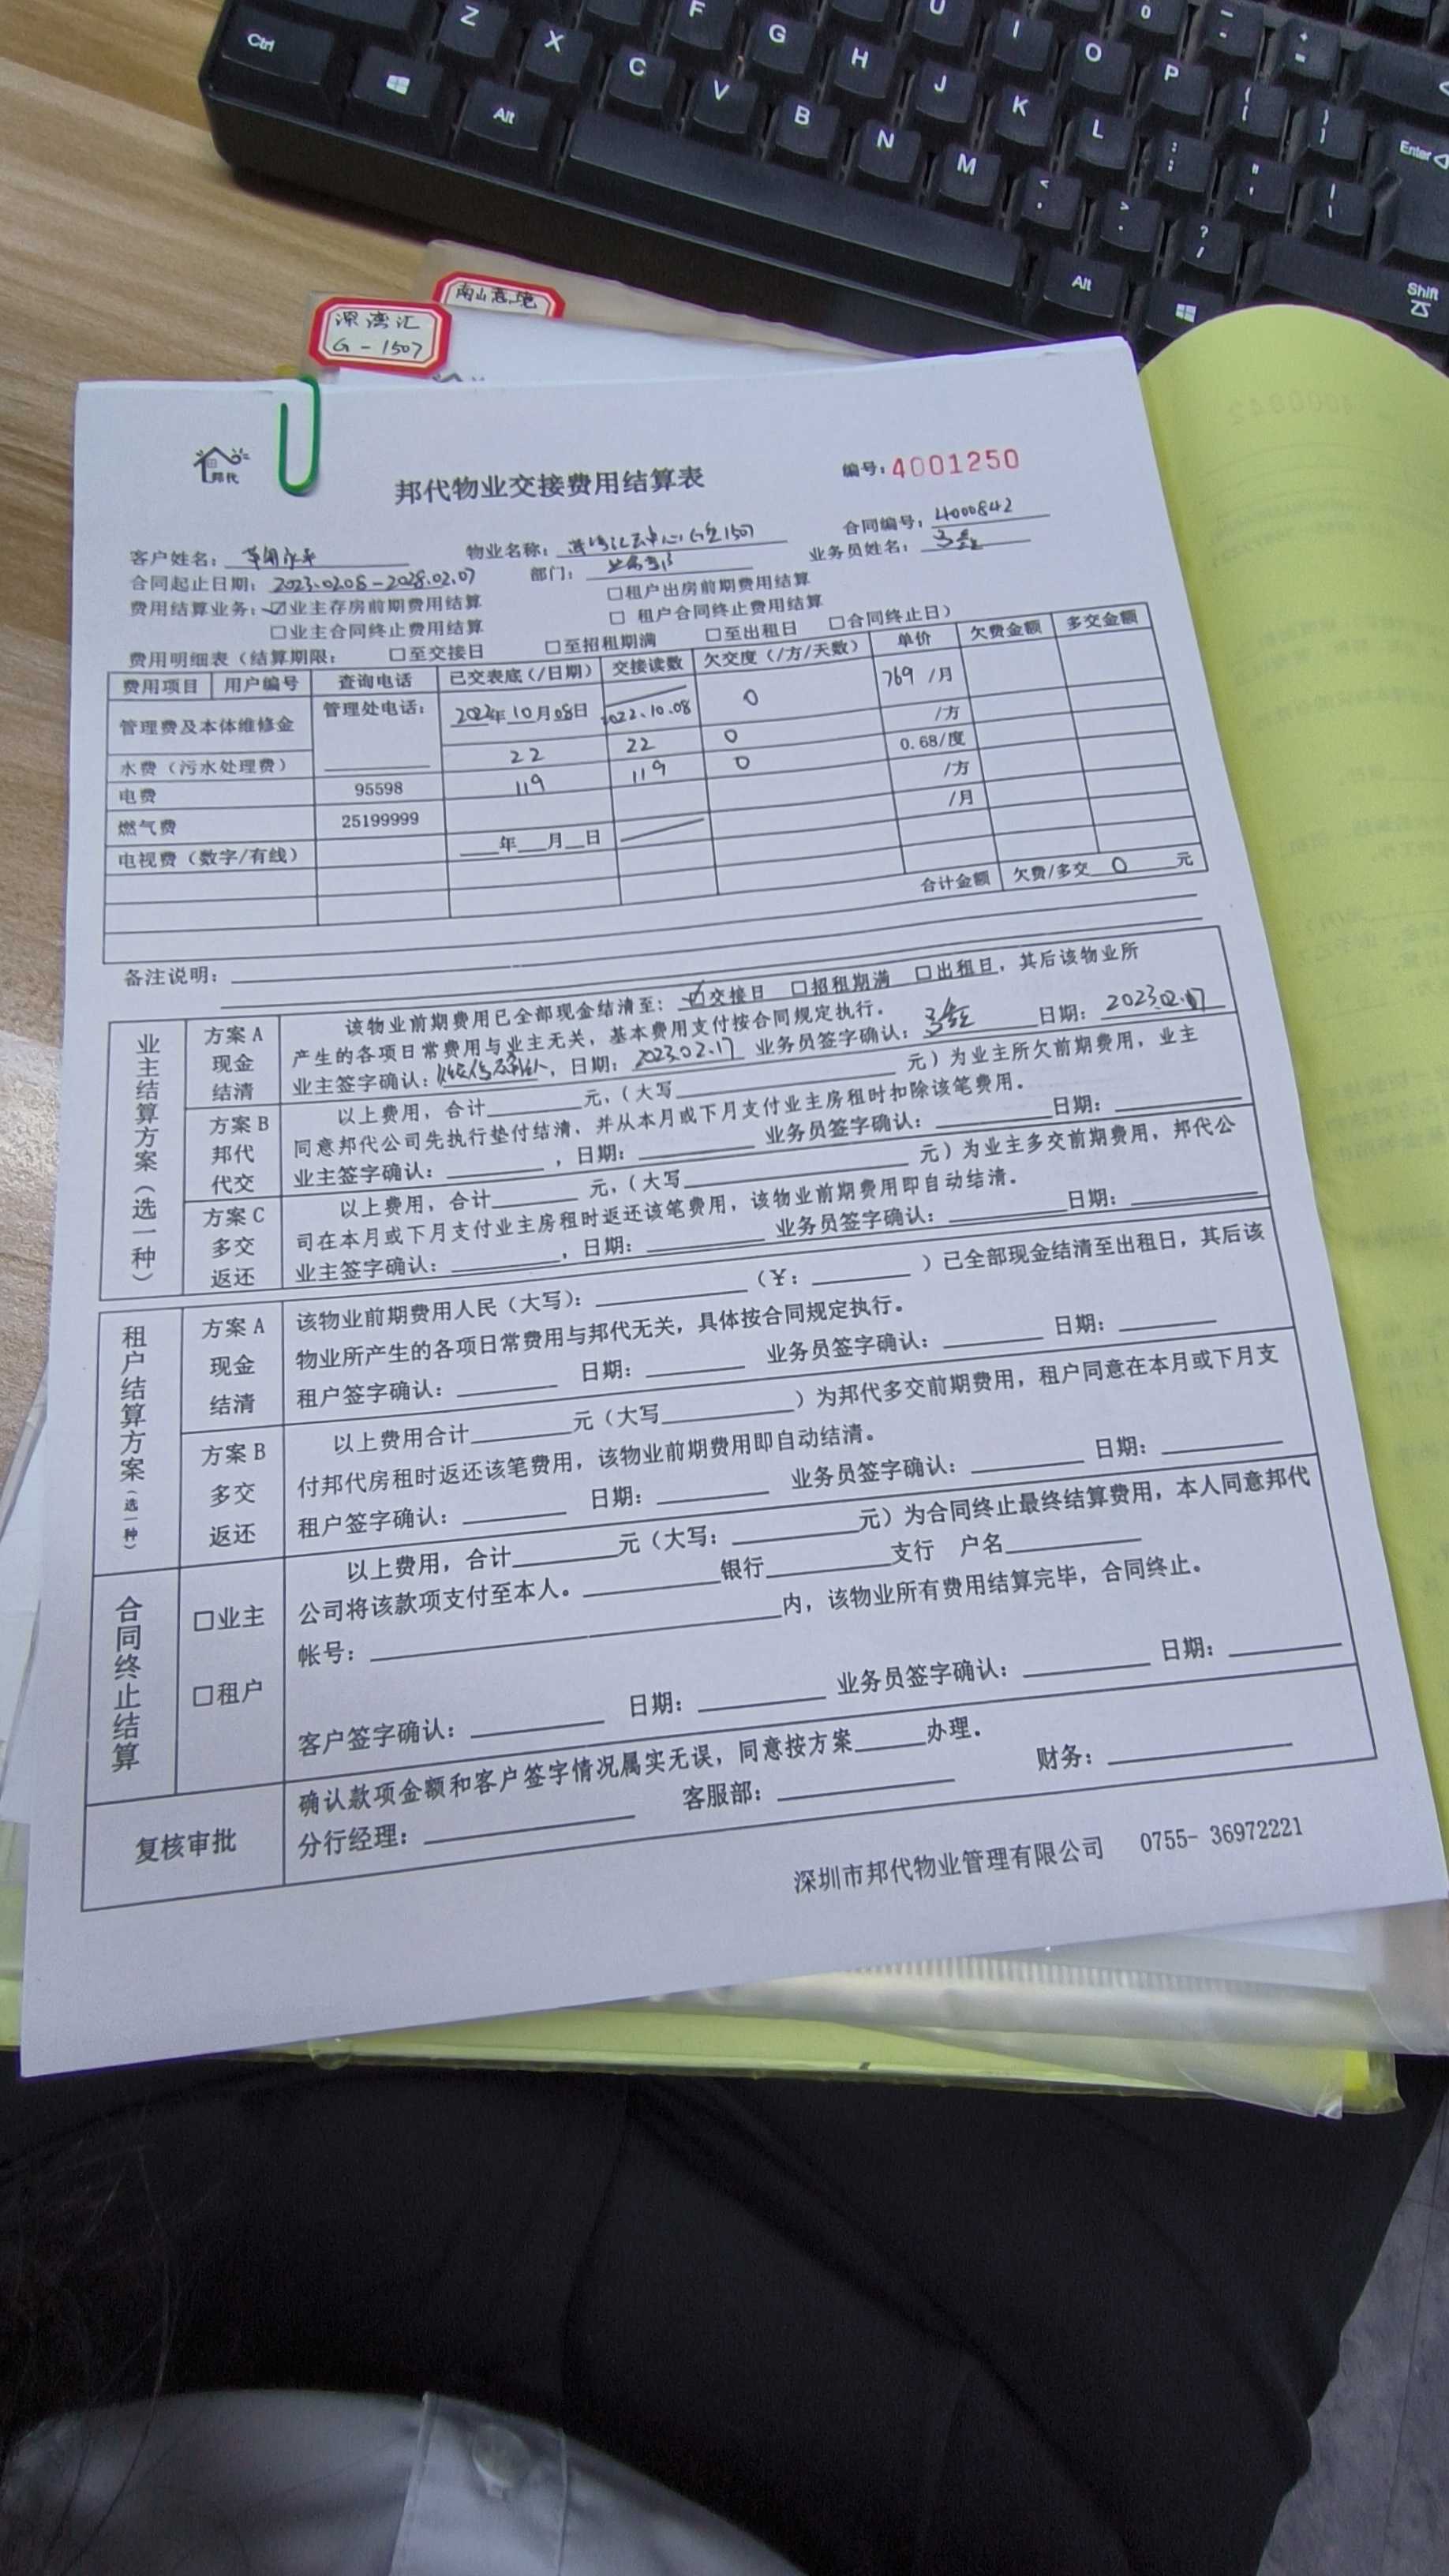 南山
深湾汇
G-1507
邦代
邦代物业交接费用结算表
编号:4001250
客户姓名:
物业名称: 1507
合同编号: 4000842
合同起止日期: 2023.0208-2028.02.07
部门:
业务员姓名:
费用结算业务: ☑业主存房前期费用结算 □租户出房前期费用结算
□业主合同终止费用结算 □ 租户合同终止费用结算
费用明细表(结算期限: □至交接日 □至招租期满 □至出租日 □合同终止日)
费用项目 用户编号 查询电话 已交表底(/日期) 交接读数 欠交度(/方/天数) 单价 欠费金额 多交金额
管理费及本体维修金 管理处电话: 2022年10月08日 2022.10.08 0 769 /月
水费(污水处理费) 22 22 0 /方
电费 95598 119 119 0 0.68/度
燃气费 25199999 /方
电视费(数字/有线) 年 月 日 /月
合计金额 欠费/多交 0 元
备注说明:
业主结算方案(选一种)
方案A 现金结清
该物业前期费用已全部现金结清至: ☑交接日 □招租期满 □出租日,其后该物业所
产生的各项日常费用与业主无关,基本费用支付按合同规定执行。
业主签字确认: ,日期: 2023.02.17 业务员签字确认: 日期: 2023.02.17
方案B 邦代代交
以上费用,合计 元,(大写 元)为业主所欠前期费用,业主
同意邦代公司先执行垫付结清,并从本月或下月支付业主房租时扣除该笔费用。
业主签字确认: ,日期: 业务员签字确认: 日期:
方案C 多交返还
以上费用,合计 元,(大写 元)为业主多交前期费用,邦代公
司在本月或下月支付业主房租时返还该笔费用,该物业前期费用即自动结清。
业主签字确认: ,日期: 业务员签字确认: 日期:
租户结算方案(选一种)
方案A 现金结清
该物业前期费用人民(大写): (¥: )已全部现金结清至出租日,其后该
物业所产生的各项日常费用与邦代无关,具体按合同规定执行。
租户签字确认: 日期: 业务员签字确认: 日期:
方案B 多交返还
以上费用合计 元(大写 )为邦代多交前期费用,租户同意在本月或下月支
付邦代房租时返还该笔费用,该物业前期费用即自动结清。
租户签字确认: 日期: 业务员签字确认: 日期:
合同终止结算
□业主
□租户
以上费用,合计 元(大写: 元)为合同终止最终结算费用,本人同意邦代
公司将该款项支付至本人。 银行 支行 户名
帐号: 内,该物业所有费用结算完毕,合同终止。
客户签字确认: 日期: 业务员签字确认: 日期:
复核审批
确认款项金额和客户签字情况属实无误,同意按方案 办理.
分行经理: 客服部: 财务:
深圳市邦代物业管理有限公司 0755- 36972221